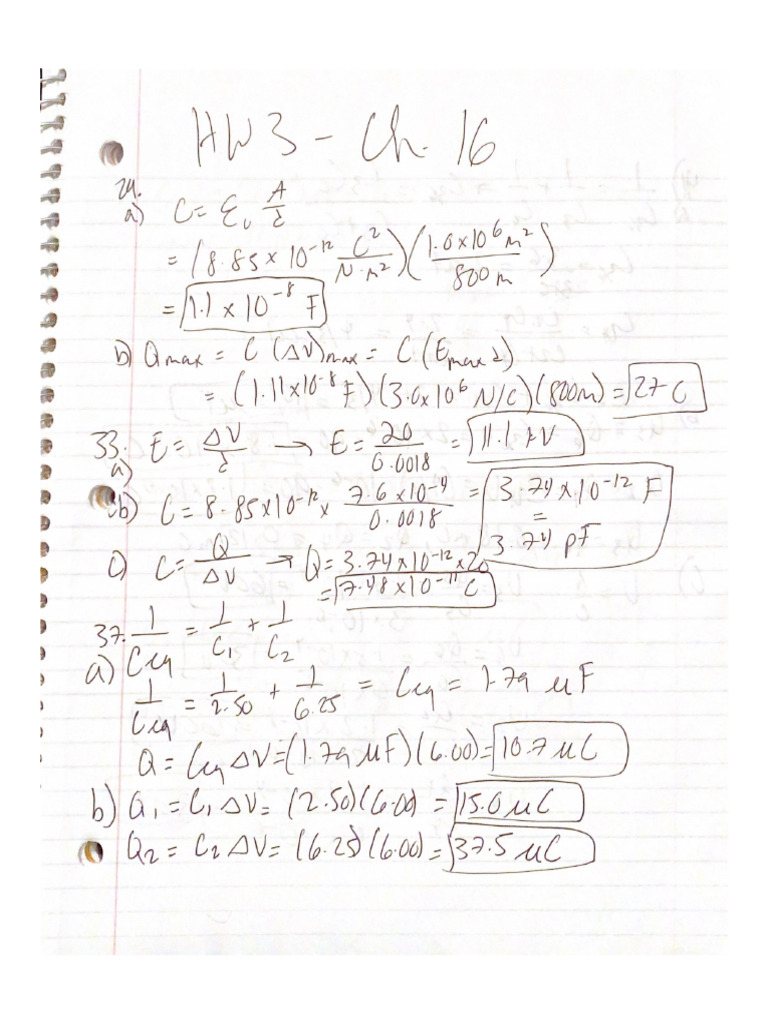 HW3 - Ch. 16
29.
a) C = ε₀ A/d
= (8.85 x 10⁻¹² C²/N·m²)(1.0x10⁶ m²/800m)
= 1.1 x 10⁻⁸ F
b) Qmax = C (ΔV)max = C(Emax d)
= (1.11x10⁻⁸ F)(3.0x10⁶ N/C)(800m) = 27 C
33. E = ΔV/d → E = 20/0.0018 = 11.1 kV
a)
b) C = 8.85x10⁻¹² x 7.6x10⁻⁴/0.0018 = 3.74x10⁻¹² F
=
3.74 pF
c) C = Q/ΔV → Q = 3.74x10⁻¹² x 20
= 7.48x10⁻¹¹ C
37. 1/Ceq = 1/C₁ + 1/C₂
a)
1/Ceq = 1/2.50 + 1/6.25 = Ceq = 1.79 μF
Q = Ceq ΔV = (1.79 μF)(6.00) = 10.7 μC
b) Q₁ = C₁ ΔV = (2.50)(6.00) = 15.0 μC
Q₂ = C₂ ΔV = (6.25)(6.00) = 37.5 μC